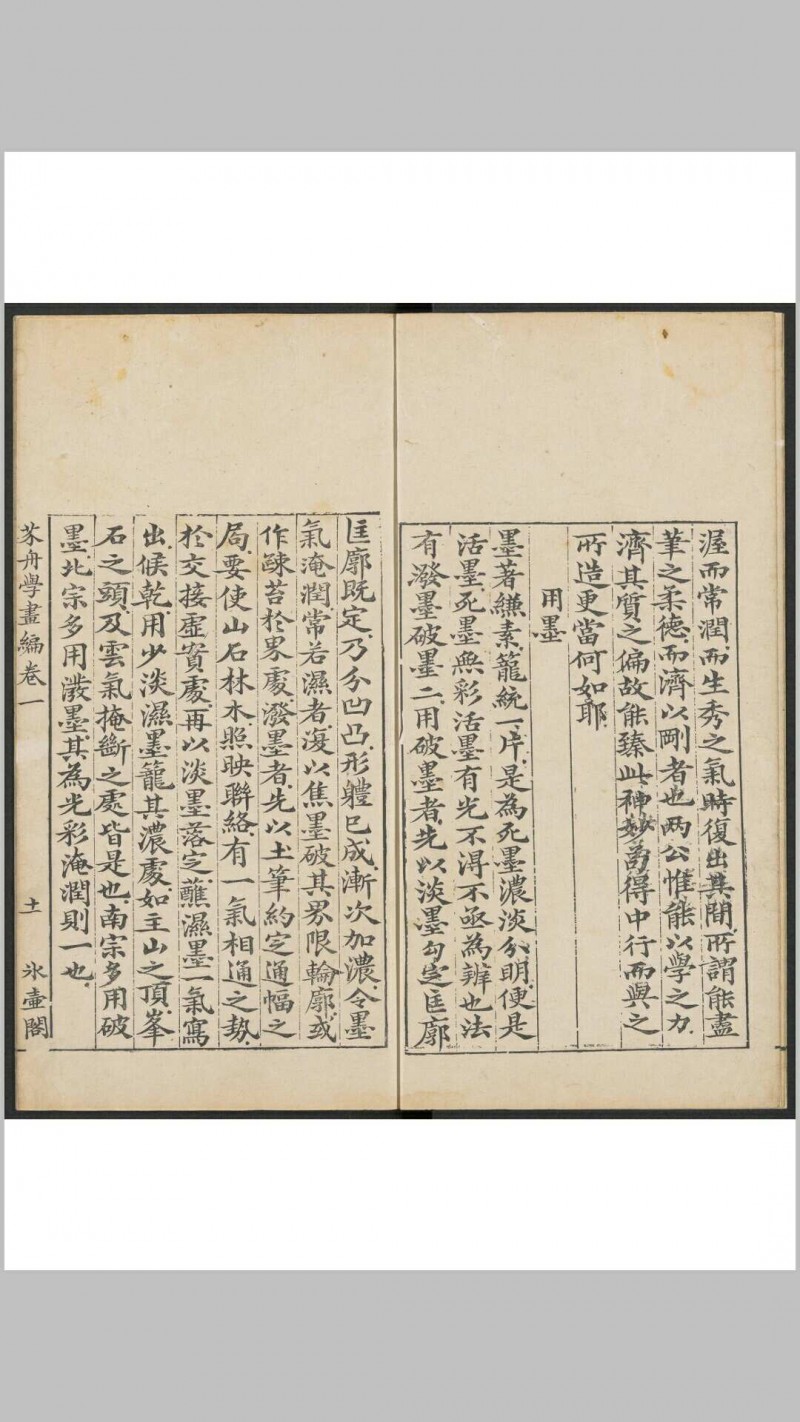 渥而常潤而生秀之氣時復出其間所謂能盡
筆之柔德而濟以剛者也两公惟能以學之力
濟其質之偏故能臻此神妙為得中行而與之
所造更當何如耶
用墨
墨著縑素籠統一片是為死墨濃淡分明便是
活墨死墨無彩活墨有光不得不亟為辨也法
有潑墨破墨二用破墨者先以淡墨勾定匡廓
匡廓既定乃分凹凸形軆已成漸次加濃令墨
氣淹潤常若濕者復以焦墨破其界限輪廓或
作踈苔於界處潑墨者先以土筆約定通幅之
局要使山石林木照映聯絡有一氣相通之勢
於交接虛實處再以淡墨落定蘸濕墨一氣寫
出候乾用少淡濕墨籠其濃處如主山之頂峯
石之頭及雲氣掩斷之處皆是也南宗多用破
墨北宗多用潑墨其為光彩淹潤則一也
芥舟學畫編卷一 十一 氷壺閣